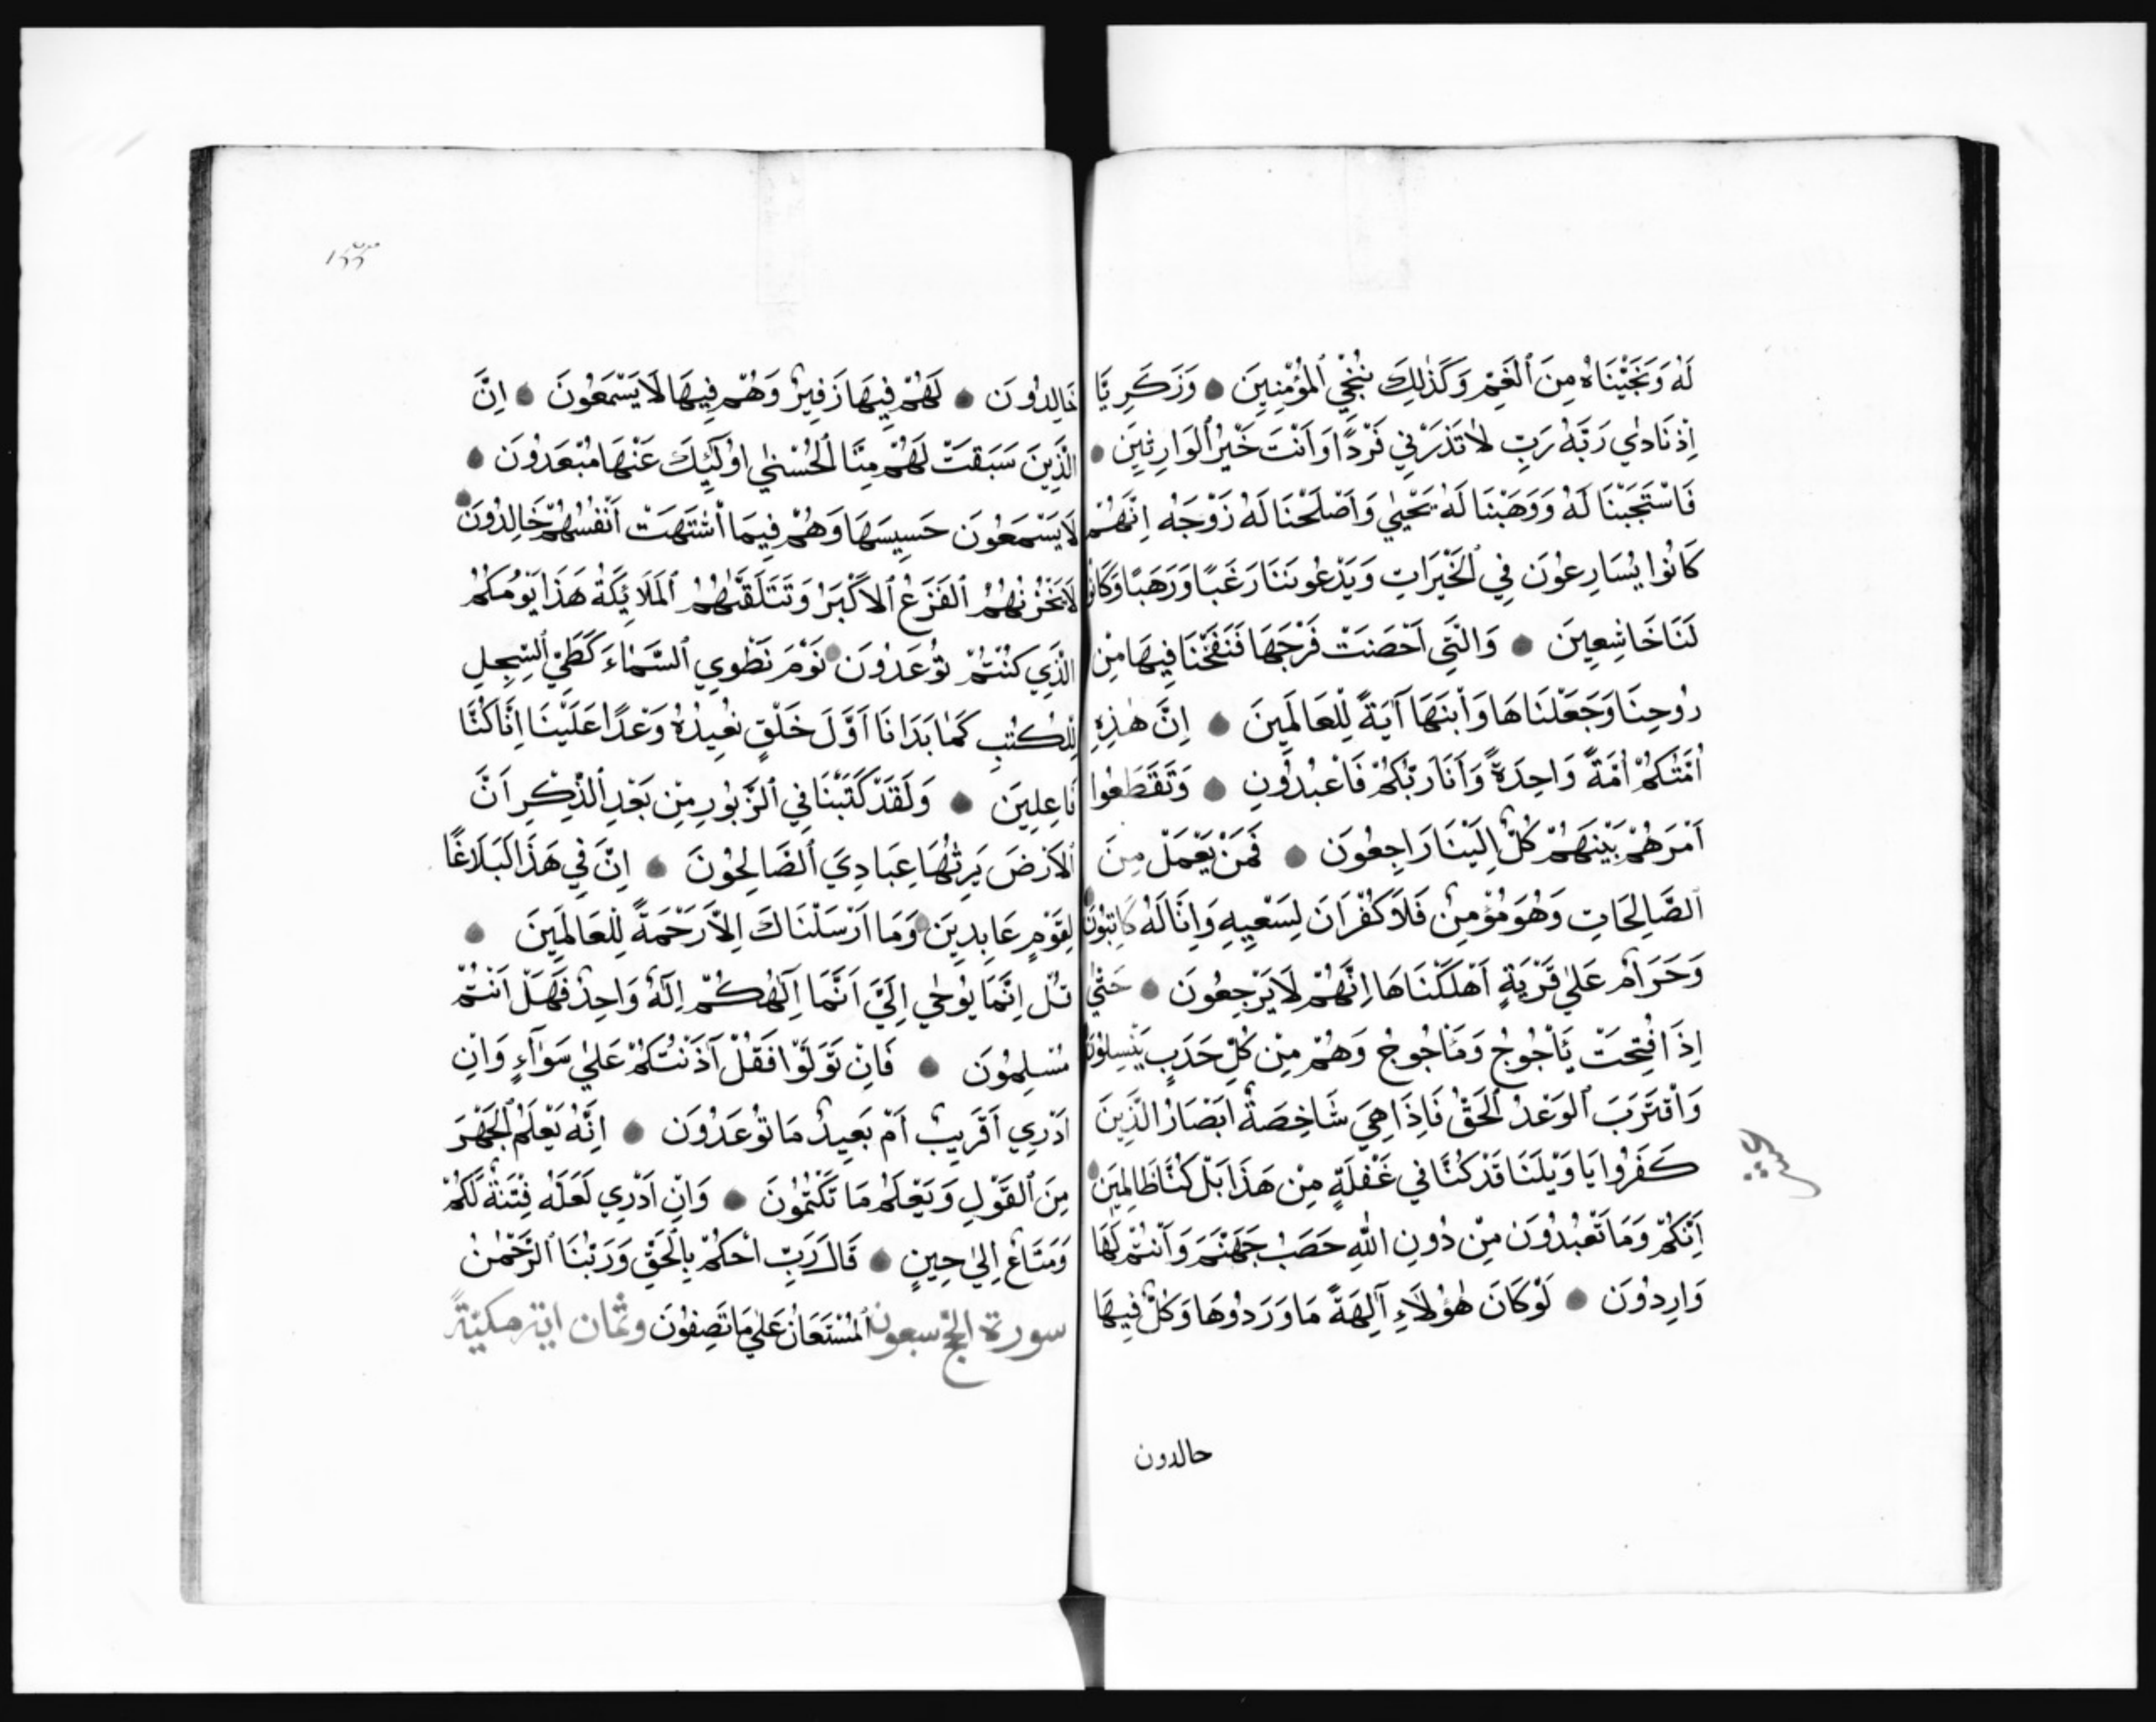 لَهُ وَنَجَّيْنَاهُ مِنَ ٱلْغَمِّ وَكَذٰلِكَ نُنْجِي ٱلْمُؤْمِنِينَ وَزَكَرِيَّا
اِذْ نَادٰي رَبَّهُ رَبِّ لَا تَذَرْنِي فَرْدًا وَاَنْتَ خَيْرُ ٱلْوَارِثِينَ
فَاسْتَجَبْنَا لَهُ وَوَهَبْنَا لَهُ يَحْيٰي وَاَصْلَحْنَا لَهُ زَوْجَهُ اِنَّهُمْ
كَانُوا يُسَارِعُونَ فِي ٱلْخَيْرَاتِ وَيَدْعُونَنَا رَغَبًا وَرَهَبًا وَكَانُوا
لَنَا خَاشِعِينَ وَالَّتِي اَحْصَنَتْ فَرْجَهَا فَنَفَخْنَا فِيهَا مِنْ
رُوحِنَا وَجَعَلْنَاهَا وَٱبْنَهَا آيَةً لِلْعَالَمِينَ اِنَّ هٰذِهِ
اُمَّتُكُمْ اُمَّةً وَاحِدَةً وَاَنَا رَبُّكُمْ فَاعْبُدُونِ وَتَقَطَّعُوا
اَمْرَهُمْ بَيْنَهُمْ كُلٌّ اِلَيْنَا رَاجِعُونَ فَمَنْ يَعْمَلْ مِنَ
ٱلصَّالِحَاتِ وَهُوَ مُؤْمِنٌ فَلَا كُفْرَانَ لِسَعْيِهِ وَاِنَّا لَهُ كَاتِبُونَ
وَحَرَامٌ عَلٰي قَرْيَةٍ اَهْلَكْنَاهَا اِنَّهُمْ لَا يَرْجِعُونَ حَتّٰي
اِذَا فُتِحَتْ يَأْجُوجُ وَمَأْجُوجُ وَهُمْ مِنْ كُلِّ حَدَبٍ يَنْسِلُونَ
وَٱقْتَرَبَ ٱلْوَعْدُ ٱلْحَقُّ فَاِذَا هِيَ شَاخِصَةٌ اَبْصَارُ الَّذِينَ
كَفَرُوا يَا وَيْلَنَا قَدْ كُنَّا فِي غَفْلَةٍ مِنْ هَذَا بَلْ كُنَّا ظَالِمِينَ
اِنَّكُمْ وَمَا تَعْبُدُونَ مِنْ دُونِ اللّٰهِ حَصَبُ جَهَنَّمَ وَاَنْتُمْ لَهَا
وَارِدُونَ لَوْ كَانَ هٰؤُلَاءِ آلِهَةً مَا وَرَدُوهَا وَكُلٌّ فِيهَا
حالدون
١٥٥
خَالِدُونَ لَهُمْ فِيهَا زَفِيرٌ وَهُمْ فِيهَا لَا يَسْمَعُونَ اِنَّ
الَّذِينَ سَبَقَتْ لَهُمْ مِنَّا ٱلْحُسْنٰي اُولَٓئِكَ عَنْهَا مُبْعَدُونَ
لَا يَسْمَعُونَ حَسِيسَهَا وَهُمْ فِيمَا ٱشْتَهَتْ اَنْفُسُهُمْ خَالِدُونَ
لَا يَحْزُنُهُمُ ٱلْفَزَعُ ٱلْاَكْبَرُ وَتَتَلَقّٰىهُمُ ٱلْمَلَائِكَةُ هَذَا يَوْمُكُمُ
الَّذِي كُنْتُمْ تُوعَدُونَ يَوْمَ نَطْوِي ٱلسَّمَاءَ كَطَيِّ ٱلسِّجِلِّ
لِلْكُتُبِ كَمَا بَدَانَا اَوَّلَ خَلْقٍ نُعِيدُهُ وَعْدًا عَلَيْنَا اِنَّا كُنَّا
فَاعِلِينَ وَلَقَدْ كَتَبْنَا فِي ٱلزَّبُورِ مِنْ بَعْدِ ٱلذِّكْرِ اَنَّ
ٱلْاَرْضَ يَرِثُهَا عِبَادِيَ ٱلصَّالِحُونَ اِنَّ فِي هَذَا لَبَلَاغًا
لِقَوْمٍ عَابِدِينَ وَمَا اَرْسَلْنَاكَ اِلَّا رَحْمَةً لِلْعَالَمِينَ
قُلْ اِنَّمَا يُوحٰي اِلَيَّ اَنَّمَا اِلٰهُكُمْ اِلَهٌ وَاحِدٌ فَهَلْ اَنْتُمْ
مُسْلِمُونَ فَاِنْ تَوَلَّوْا فَقُلْ آذَنْتُكُمْ عَلٰي سَوَآءٍ وَاِنْ
اَدْرِي اَقَرِيبٌ اَمْ بَعِيدٌ مَا تُوعَدُونَ اِنَّهُ يَعْلَمُ ٱلْجَهْرَ
مِنَ ٱلْقَوْلِ وَيَعْلَمُ مَا تَكْتُمُونَ وَاِنْ اَدْرِي لَعَلَّهُ فِتْنَةٌ لَكُمْ
وَمَتَاعٌ اِلٰي حِينٍ قَالَ رَبِّ احْكُمْ بِالْحَقِّ وَرَبُّنَا ٱلرَّحْمٰنُ
ٱلْمُسْتَعَانُ عَلٰي مَا تَصِفُونَ
سورة الحج سبعون وثمان اية مكيّة